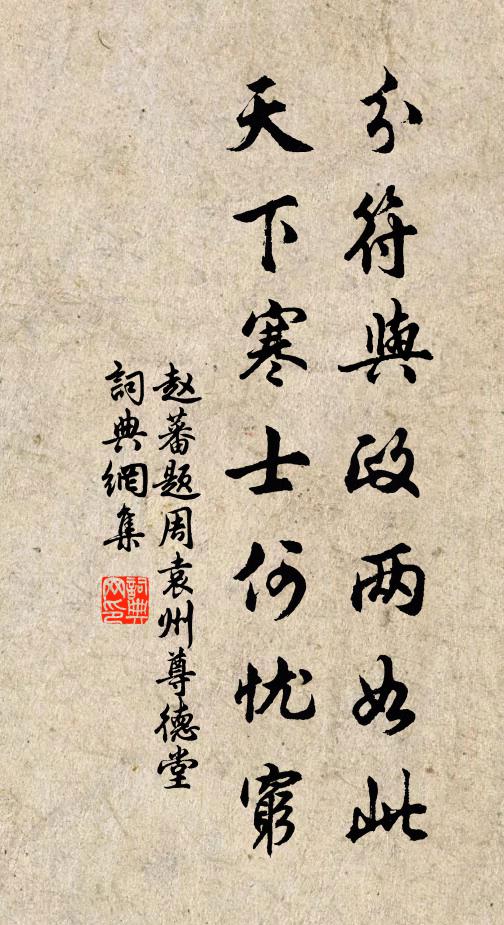 分符與政两如此
天下寒士何忧窮
赵蕃题周袁州尊德堂
詞典網集
詞典
网印